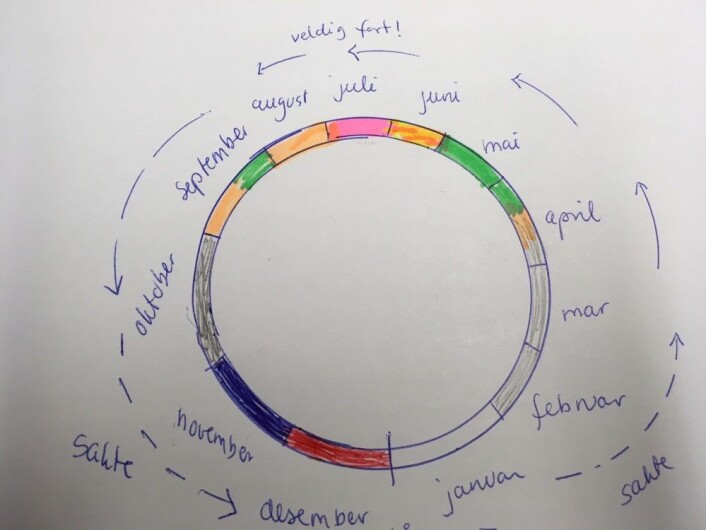 veldig fort!
juli
juni
august
mai
september
april
oktober
mar
februar
november
sakte
januar
sakte
desember